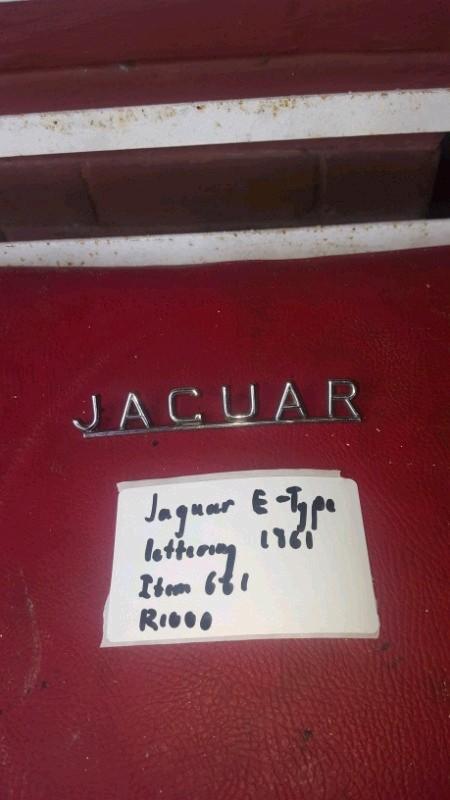 JAGUAR
Jaguar E-Type
lettering 1961
Item 661
R1000